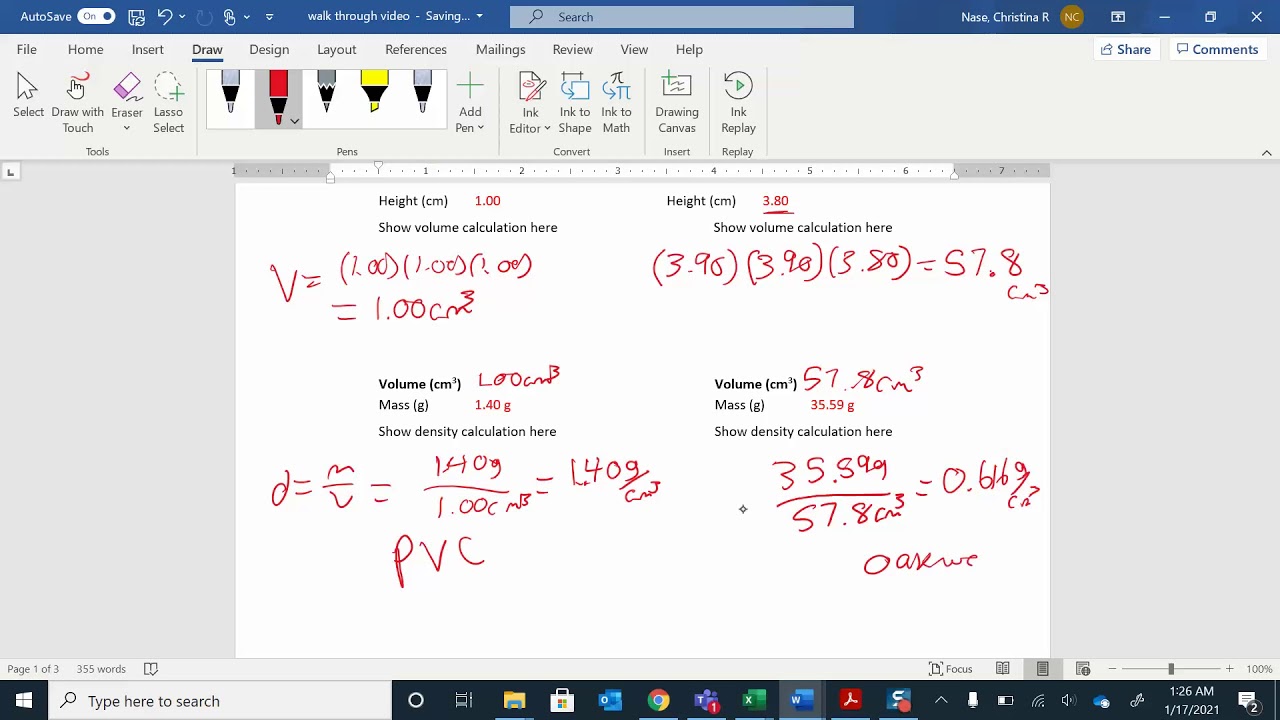 AutoSave On walk through video - Saving... Search Nase, Christina R NC
File Home Insert Draw Design Layout References Mailings Review View Help Share Comments
Select Draw with Touch Eraser Lasso Select Add Pen Ink Editor Ink to Shape Ink to Math Drawing Canvas Ink Replay
Tools Pens Convert Insert Replay
1 1 2 3 4 5 6 7
Height (cm) 1.00 Height (cm) 3.80
Show volume calculation here Show volume calculation here
V = (1.00)(1.00)(1.00) (3.90)(3.90)(3.80) = 57.8 cm³
= 1.00cm³
Volume (cm³) 1.00cm³ Volume (cm³) 57.8cm³
Mass (g) 1.40 g Mass (g) 35.59 g
Show density calculation here Show density calculation here
d = m/v = 1.40g/1.00cm³ = 1.40g/cm³ 35.59g/57.8cm³ = 0.616g/cm³
PVC
Page 1 of 3 355 words Focus 100%
Type here to search 1:26 AM
1/17/2021 2